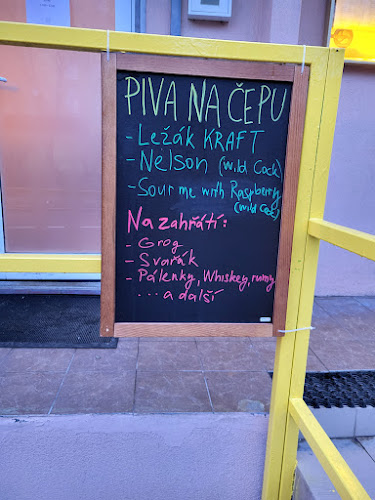 PIVA NA ČEPU
- Ležák KRAFT
- Nelson (Wild Cock)
- Sour me with Raspberry
(Wild Cock)
Na zahřátí:
- Grog
- Svařák
- Pálenky, Whiskey, rumy
... a další